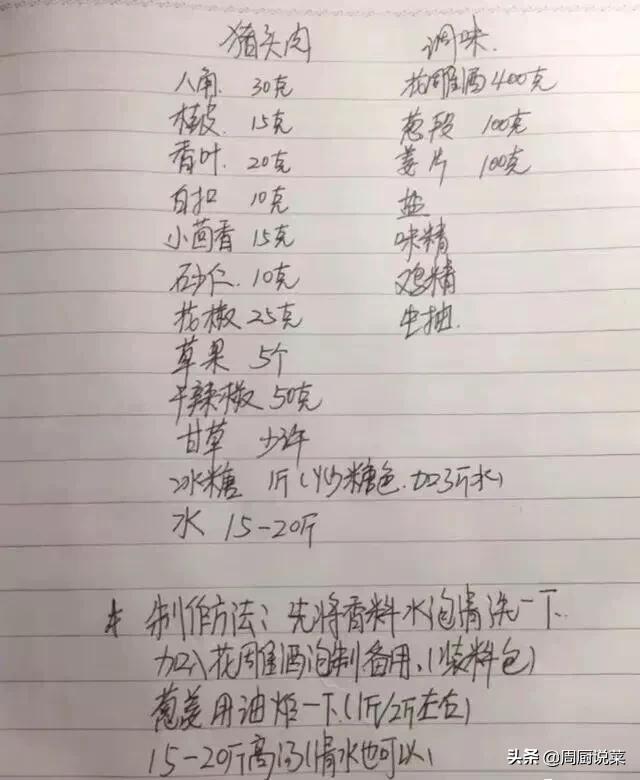 猪头肉 调味.
八角. 30克 花雕酒400克
桂皮. 15克 葱段 100克
香叶. 20克 姜片 100克
白扣 10克 盐
小茴香 15克 味精
砂仁. 10克 鸡精
花椒 25克 生抽.
草果 5个
干辣椒 50克
甘草 少许
冰糖 1斤(炒糖色.加3斤水)
水 15-20斤
* 制作方法: 先将香料水泡清洗一下.
加入花雕酒泡制备用.(装料包)
葱姜用油炸一下.(1斤/2斤左右)
15-20斤高汤(清水也可以)
头条 @周厨说菜